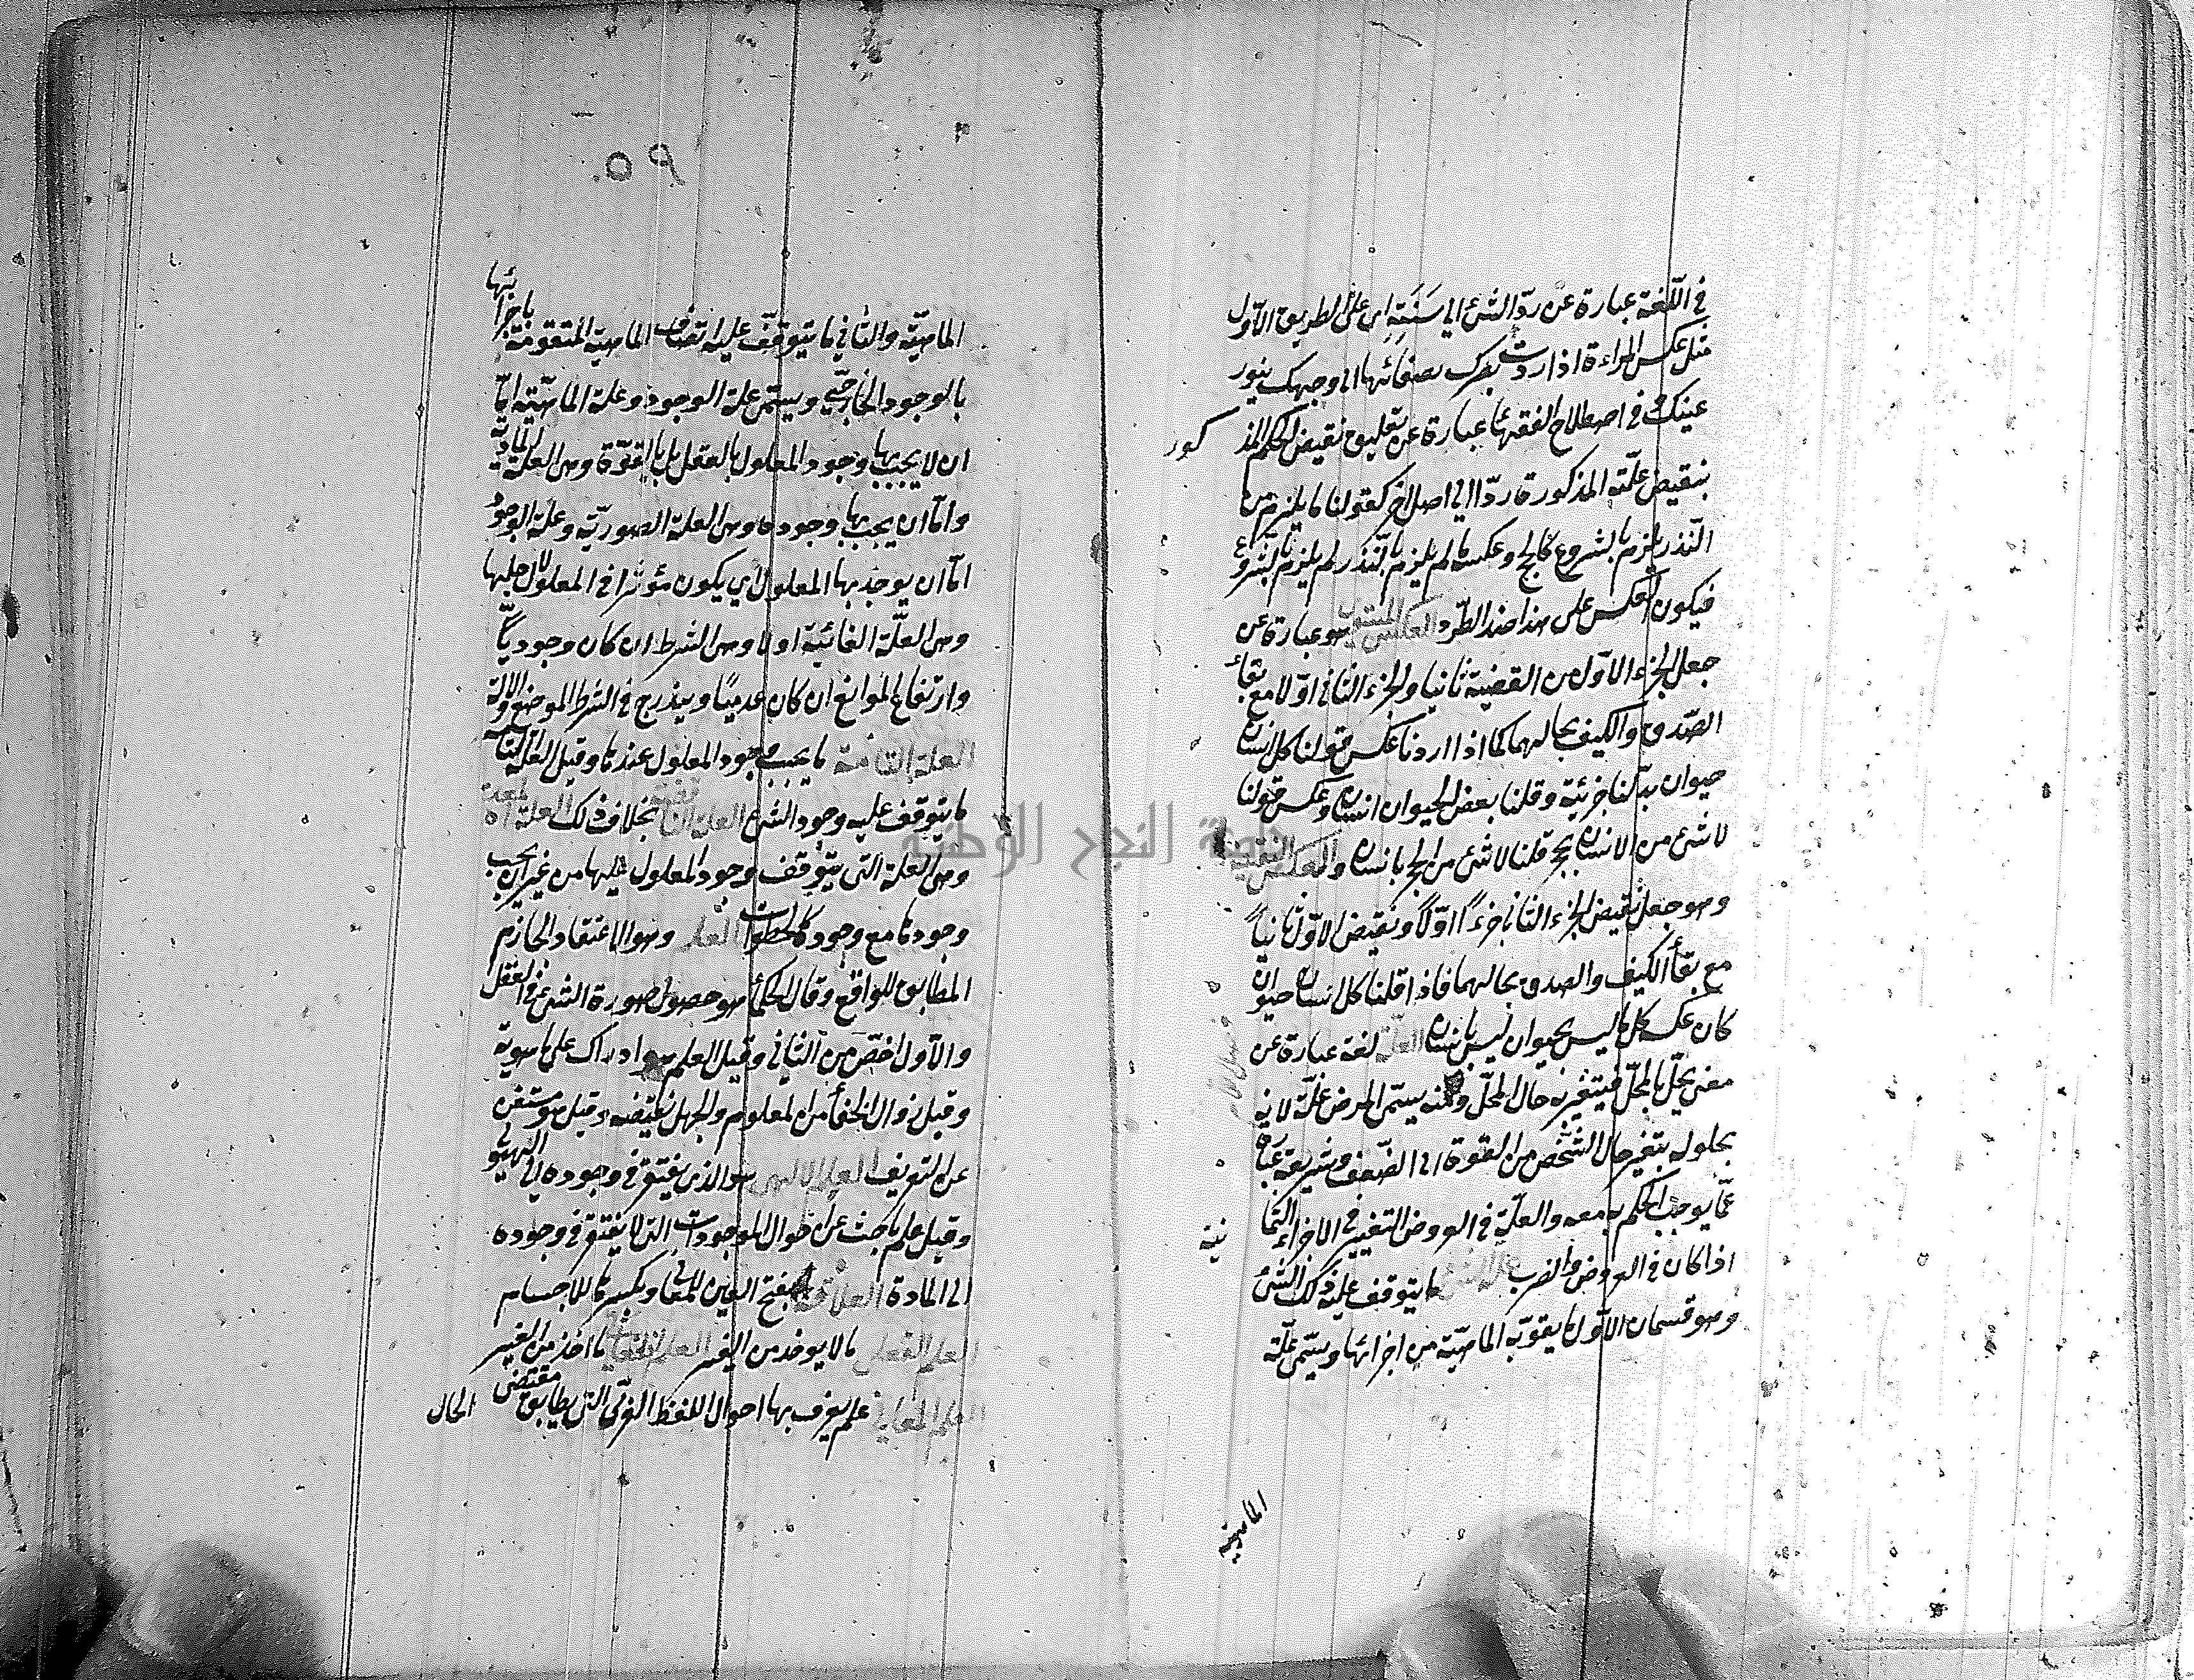 في اللّغة عبارة عن ردّ الشئ الى سَنَنِه اى على الطريق الاوّل
مثل عكس المراءة اذا ردت بصرك بصفائها الى وجهك بنور
عينك وفى اصطلاح الفقهاء عبارة عن تعليق نقيض الحكم المذ كور
بنقيض علّته المذكورة ردّا الى اصل اخر كقولنا ما يلزم من
النّذر يلزم بالشروع كالحج وعكسه ما لم يلزم بالنّذر لم يلزم بالشروع
فيكون العكس على هذا ضدّ الطّرد العكس المستوى هو عبارة عن
جعل الجزء الاوّل من القضية ثانيا والجزء الثانى اوّلا مع بقاء
الصّدق والكيف بحالهما كما اذا اردنا عكس قولنا كل انسان
حيوان بدّلنا جزئيه وقلنا بعض الحيوان انسان وعكس قولنا
لا شئ من الانسان بحجر قلنا لا شئ من الحجر بانسان والعكس النقيض
وهو جعل نقيض الجزء الثانى جزءًا اوّلاً ونقيض الاوّل ثانياً
مع بقاء الكيف والصدق بحالهما فاذا قلنا كل انسان حيوان
كان عكسه كل ما ليس بحيوان ليس بانسان العلّة لغة عبارة عن
معنى يحلّ بالمحلّ فيتغير به حال المحلّ ومنه يسمّى المرض علّة لانه
بحلوله يتغير حال الشّخص من القوّة الى الضّعف وشريعة عبارة
عمّا يوجب الحكم به معه والعلّة فى العروض التغيير فى الاجزاء الثما نية
اذا كان فى العروض والضرب علة الشئ ما يتوقف عليه ذلك الشئ
وهو قسمان الاوّل ما يقوّم به الماهيّة من اجزائها ويسمّى علّة
الماهية
٥٩
الماهيّة والثانى ما يتوقّف عليه اتصاف الماهية المتقومة باجزائها
بالوجود الخارجىّ ويسمّى علة الوجود وعلة الماهيّة امّا
ان لا يجب بها وجود المعلول بالفعل بل بالقوّة وهى العلة المادّية
وامّا ان يجب بها وجوده وهى العلة الصوريّة وعلة الوجود
امّا ان يوجد بها المعلول اى يكون مؤثرا فى المعلول لاجلها
وهى العلّة الغائيّة اولا وهى الشرط ان كان وجوديّا
وارتفاع الموانع ان كان عدميّا ويندرج فى الشرط الموضع والالة
العلة التامة ما يجب وجود المعلول عندها وقيل العلة التامة
ما يتوقف عليه وجود الشئ العلة الناقصة بخلاف ذلك العلة المعدة
وهى العلة التى يتوقف وجود المعلول عليها من غير ان يجب
وجودها مع وجوده كالخطوات العلم وهو الاعتقاد الجازم
المطابق للواقع وقال الحكماء هو حصول صورة الشئ فى العقل
والاوّل اخصّ من الثانى وقيل العلم هو ادراك على ما هو به
وقيل زوال الخفأ من المعلوم والجهل نقيضه وقيل هو مستغن
عن التعريف العلم الالهى هو الذى يفتقر فى وجوده الى الهيولى
وقيل علم باحث عن احوال الموجودات التى لا يفتقر فى وجوده
الى المادة العلاقة بفتح العين للمعانى وبكسرها للاجسام
العلم الفعلى ما لا يوخذ من الغير العلم الانفعالى ما اخذ من الغير
العلم المعانى علم يعرف بها احوال اللفظ العربى التى يطابق مقتضى الحال
جامعة النجاح الوطنية